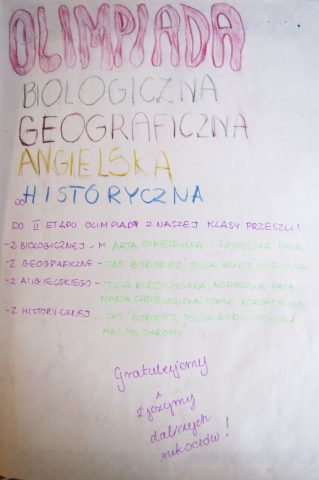 OLIMPIADA
BIOLOGICZNA
GEOGRAFICZNA
ANGIELSKA
HISTORYCZNA
DO II ETAPU OLIMPIADY Z NASZEJ KLASY PRZESZLI!
-Z BIOLOGICZNEJ - MARTA CHMIELEWSKA I AGNIESZKA PACA
-Z GEOGRAFICZNEJ - JAŚ BOBODEJ, JULIA BUDZISZEWSKA
-Z ANGIELSKIEGO - JULIA BUDZISZEWSKA, AGNIESZKA PACA,
MARTA CHMIELEWSKA,
-Z HISTORYCZNEJ - JAŚ BOBODEJ, JULIA BUDZISZEWSKA
Gratulujemy
i
życzymy
dalszych
sukcesów!